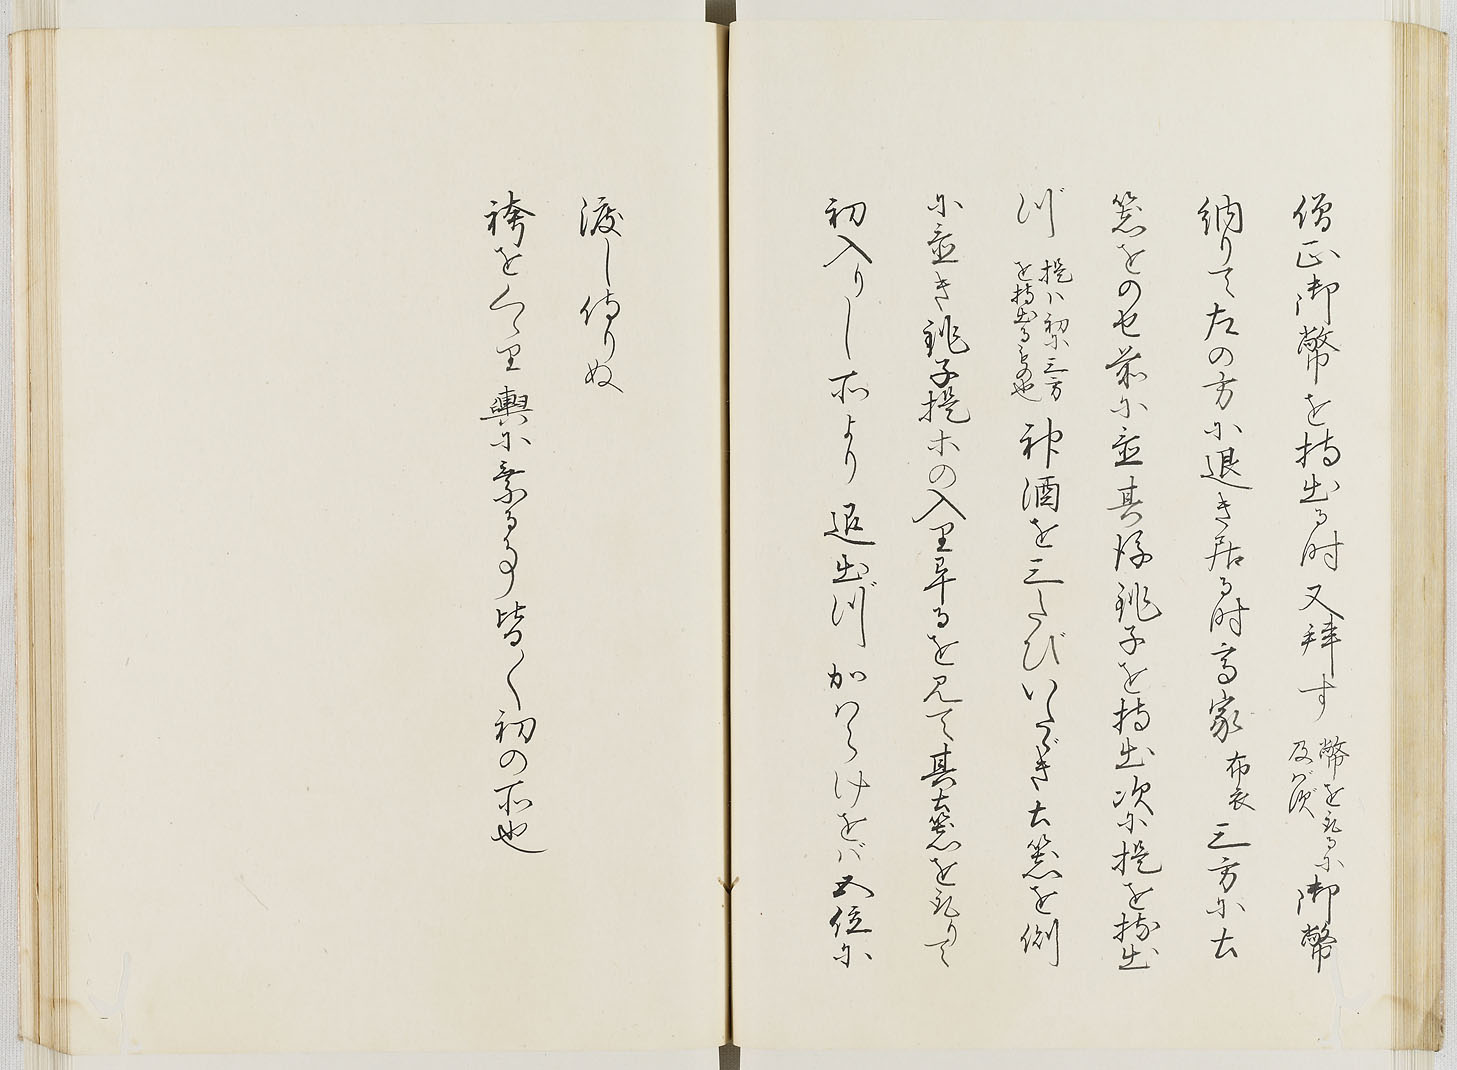 僧正御幣を持出る時又拝す幣を取るに及バず御幣
納りて左の方に退き居る時高家布衣三方に土
器をのせ前に並其後銚子を持出次に提を持出
づ提ハ初に三方を持出るもの也神酒を三たびいたゞき土器を側
に並き銚子提ホの入里畢るを見て其土器を取りて
初入りし所より退出づかハらけをバ五位に
渡し侍りぬ
袴をくゝ里輿に乗る事皆〱初の所也